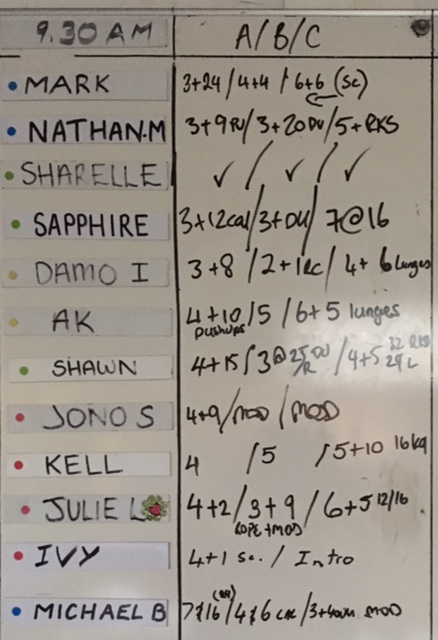 9.30 AM A/B/C
MARK 3+24/4+4/6+6 (SC)
NATHAN.M 3+9PU/3+20DU/5+RKS
SHARELLE ✓/✓/✓
SAPPHIRE 3+12cal/3+DU/7@16
DAMO I 3+8/2+1RC/4+6 lunges
AK 4+10/5/6+5 lunges
pushups
SHAWN 4+15/3@25DU/R/4+5 12 RKS 24 L
JONO S 4+9/MOD/MOD
KELL 4/5/5+10 16kg
JULIE L 4+2/3+9/6+5 12/16
ROPE+MOD
IVY 4+1 Sc./Intro
MICHAEL B MOD